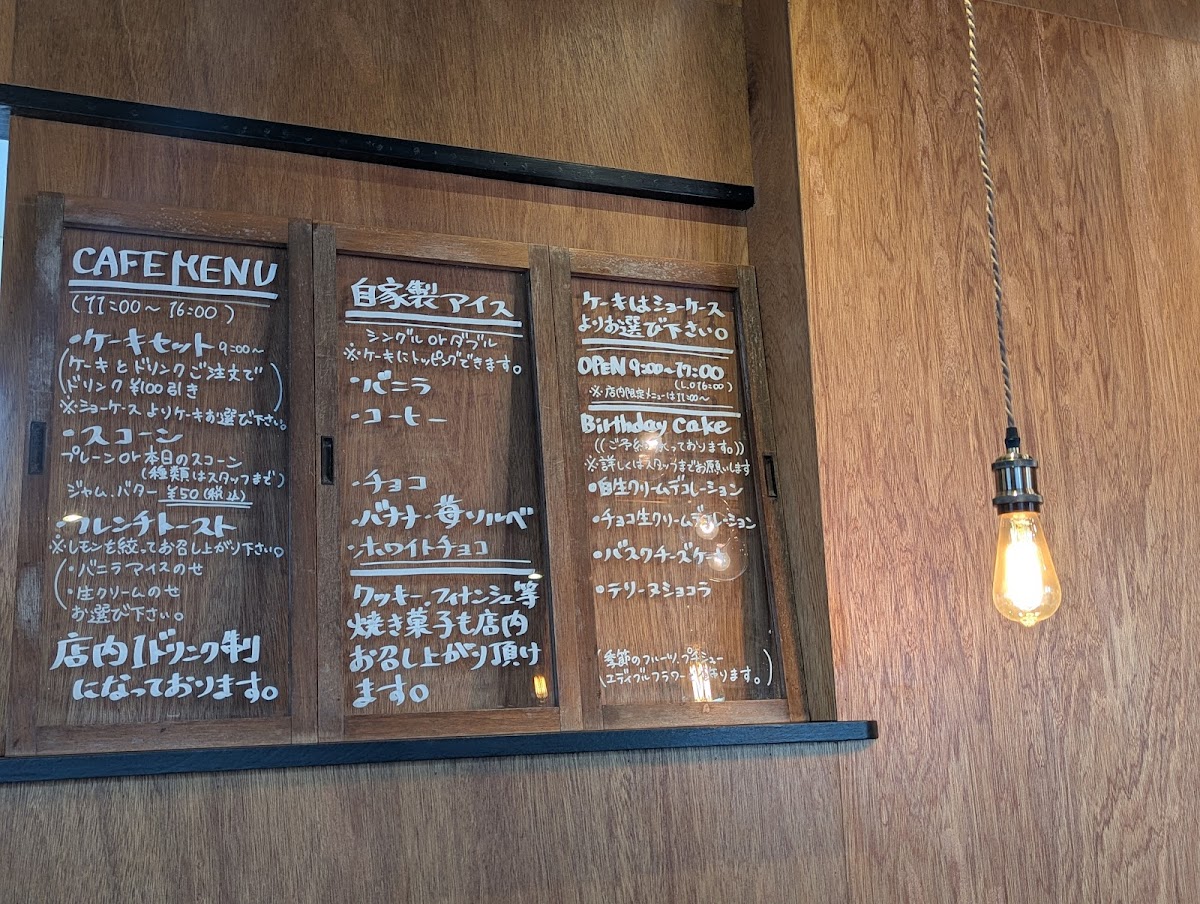 CAFE MENU
(11:00～16:00)
・ケーキセット 9:00～
(ケーキとドリンクご注文で
ドリンク ¥100引き)
※ショーケースよりケーキお選び下さい。
・スコーン
プレーン or 本日のスコーン
(種類はスタッフまで)
ジャム、バター ¥50(税込)
・フレンチトースト
※レモンを絞ってお召し上がり下さい。
(・バニラアイスのせ
・生クリームのせ
お選び下さい。
店内1ドリンク制
になっております。
自家製アイス
シングル or ダブル
※ケーキにトッピングできます。
・バニラ
・コーヒー
・チョコ
・バナナ・苺ソルベ
・ホワイトチョコ
クッキー、フィナンシェ等
焼き菓子も店内
お召し上がり頂け
ます。
ケーキはショーケース
よりお選び下さい。
OPEN 9:00～17:00
(L.O 16:00)
※店内限定メニューは11:00～
Birthday Cake
((ご予約承っております。))
※詳しくはスタッフまでお願いします
・生クリームデコレーション
・チョコ生クリームデコレーション
・バスクチーズケーキ
・テリーヌショコラ
(季節のフルーツ、プチシュー
エディブルフラワー 飾ります。)